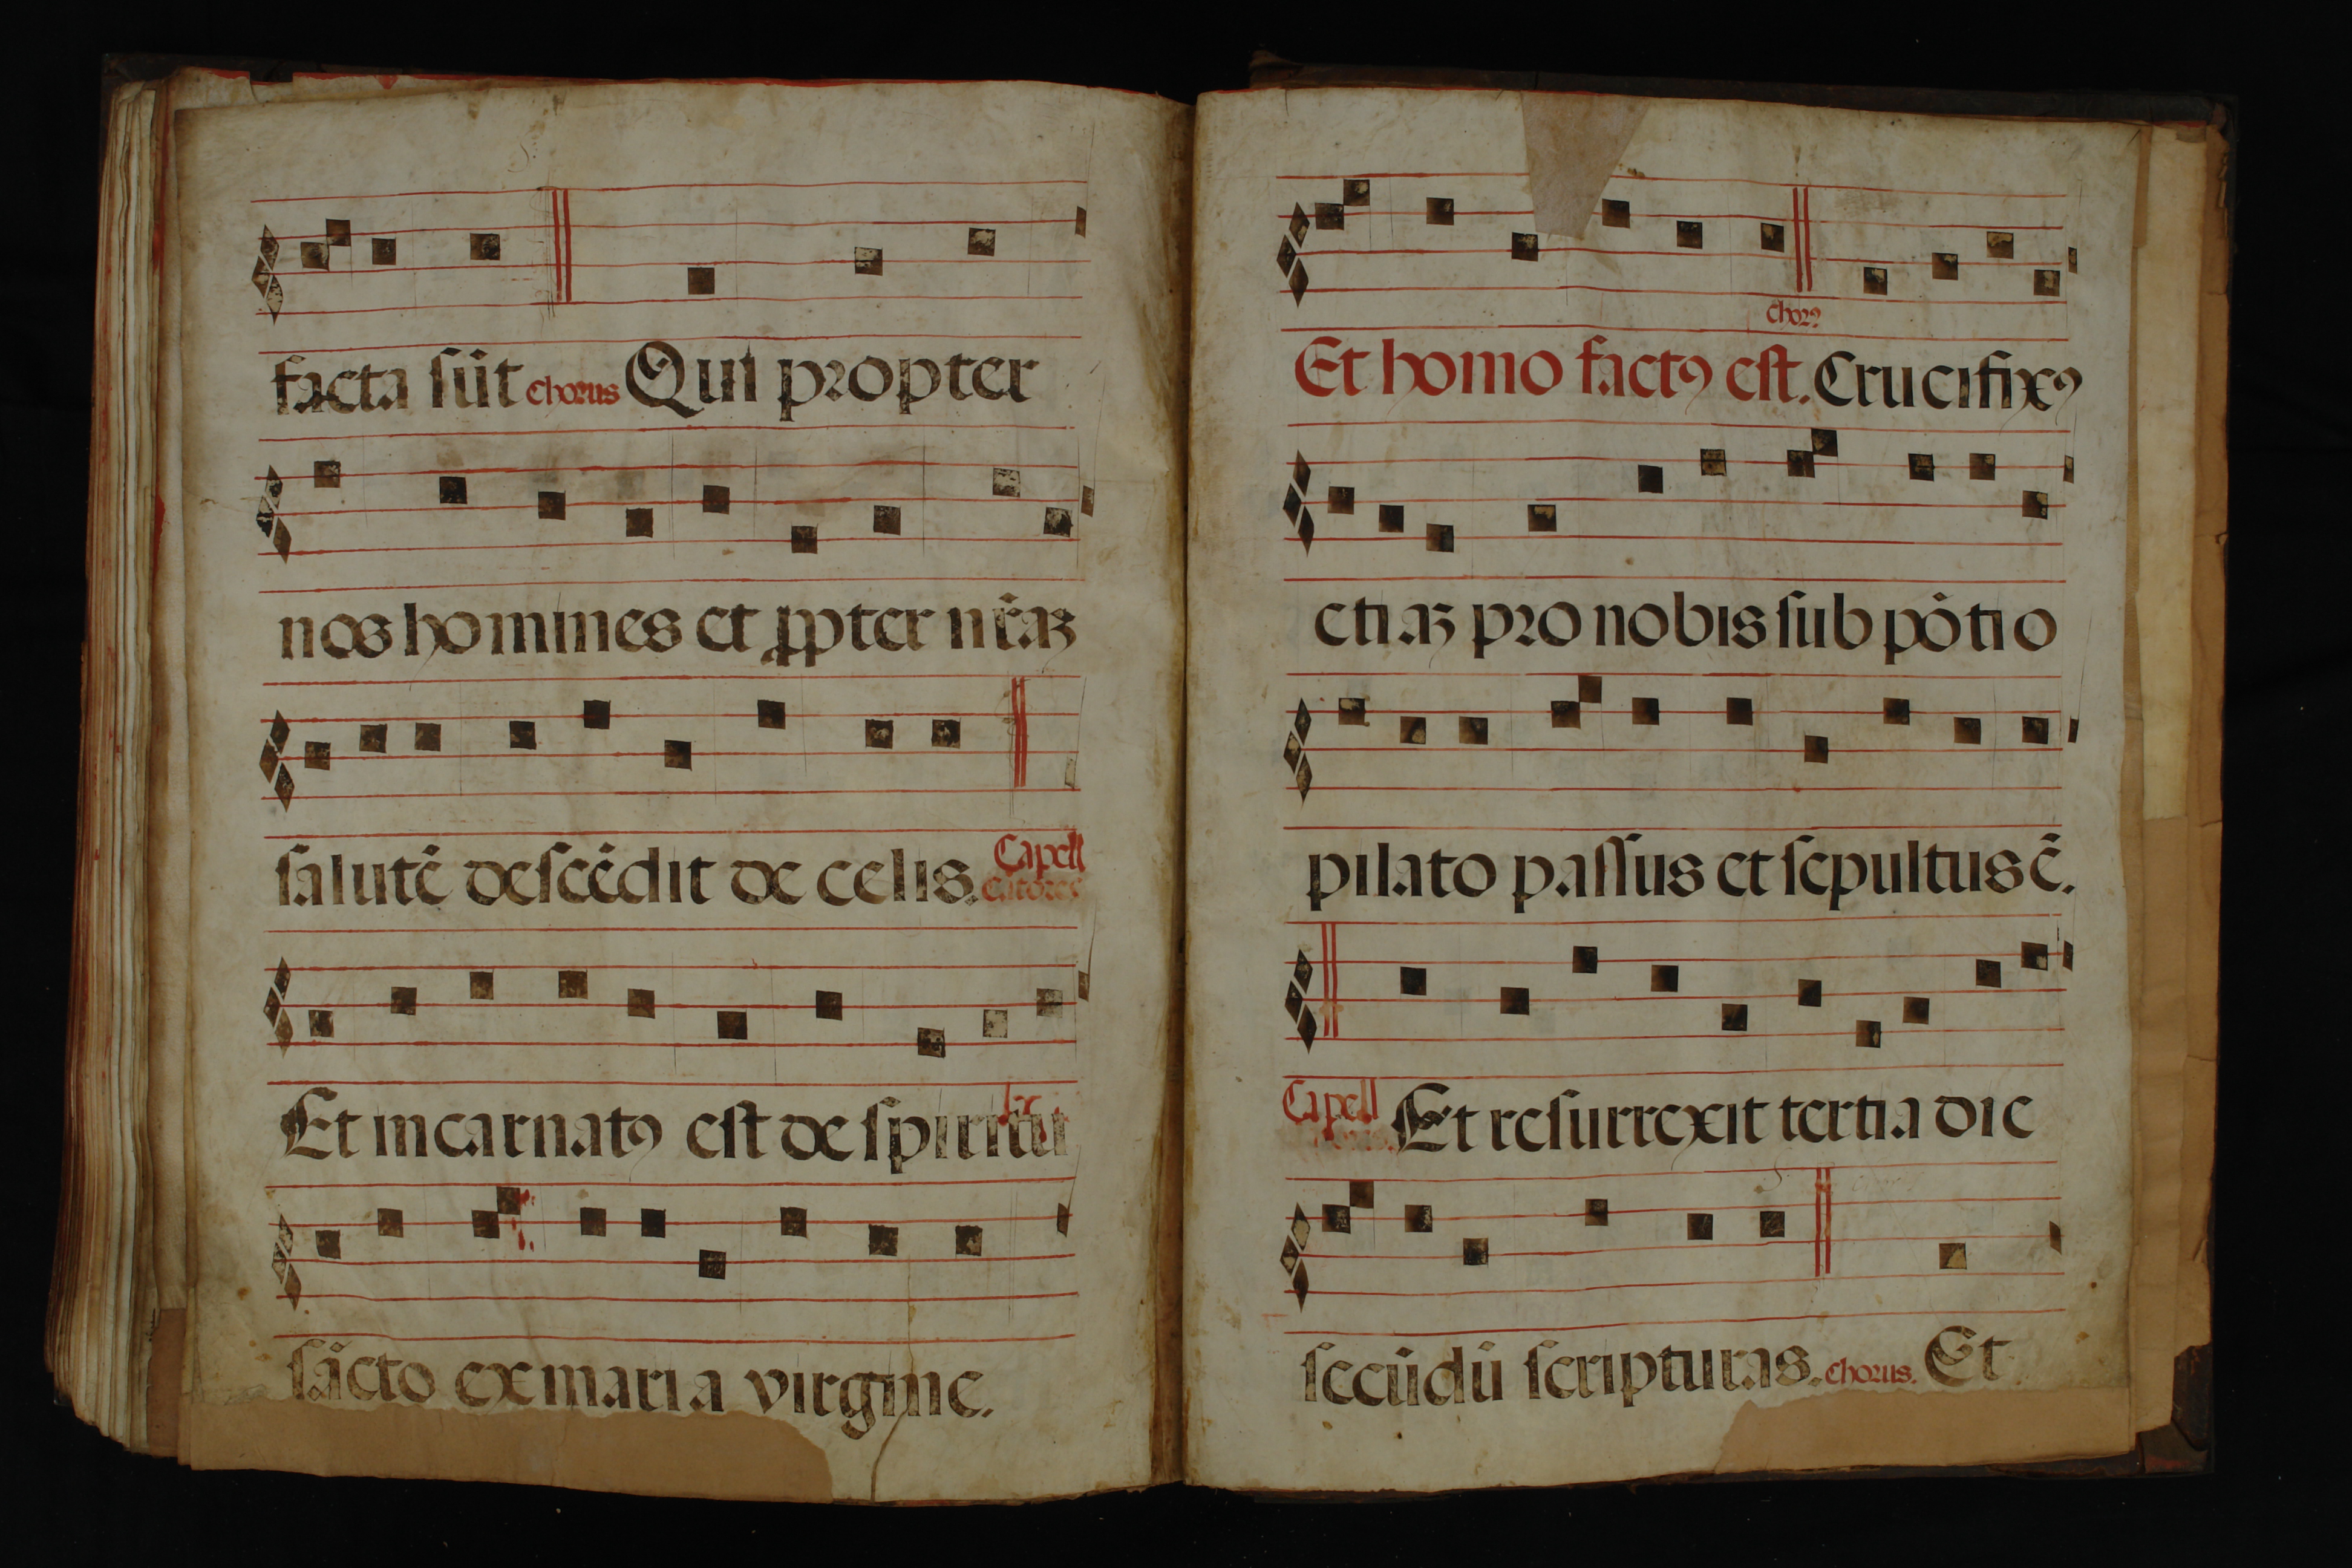 facta sūt chorus Qui propter
nos homines et ꝓpter nr̄aꝫ
salutē descēdit de celis. Capell
cātores
Et incarnatꝰ est de spiritu
sācto ex maria virgine.
chorꝰ
Et homo factꝰ est. Crucifixꝰ
etiaꝫ pro nobis sub pōtio
pilato passus et sepultus ē.
Capell Et resurrexit tertia die
secūdū scripturas. chorus. Et